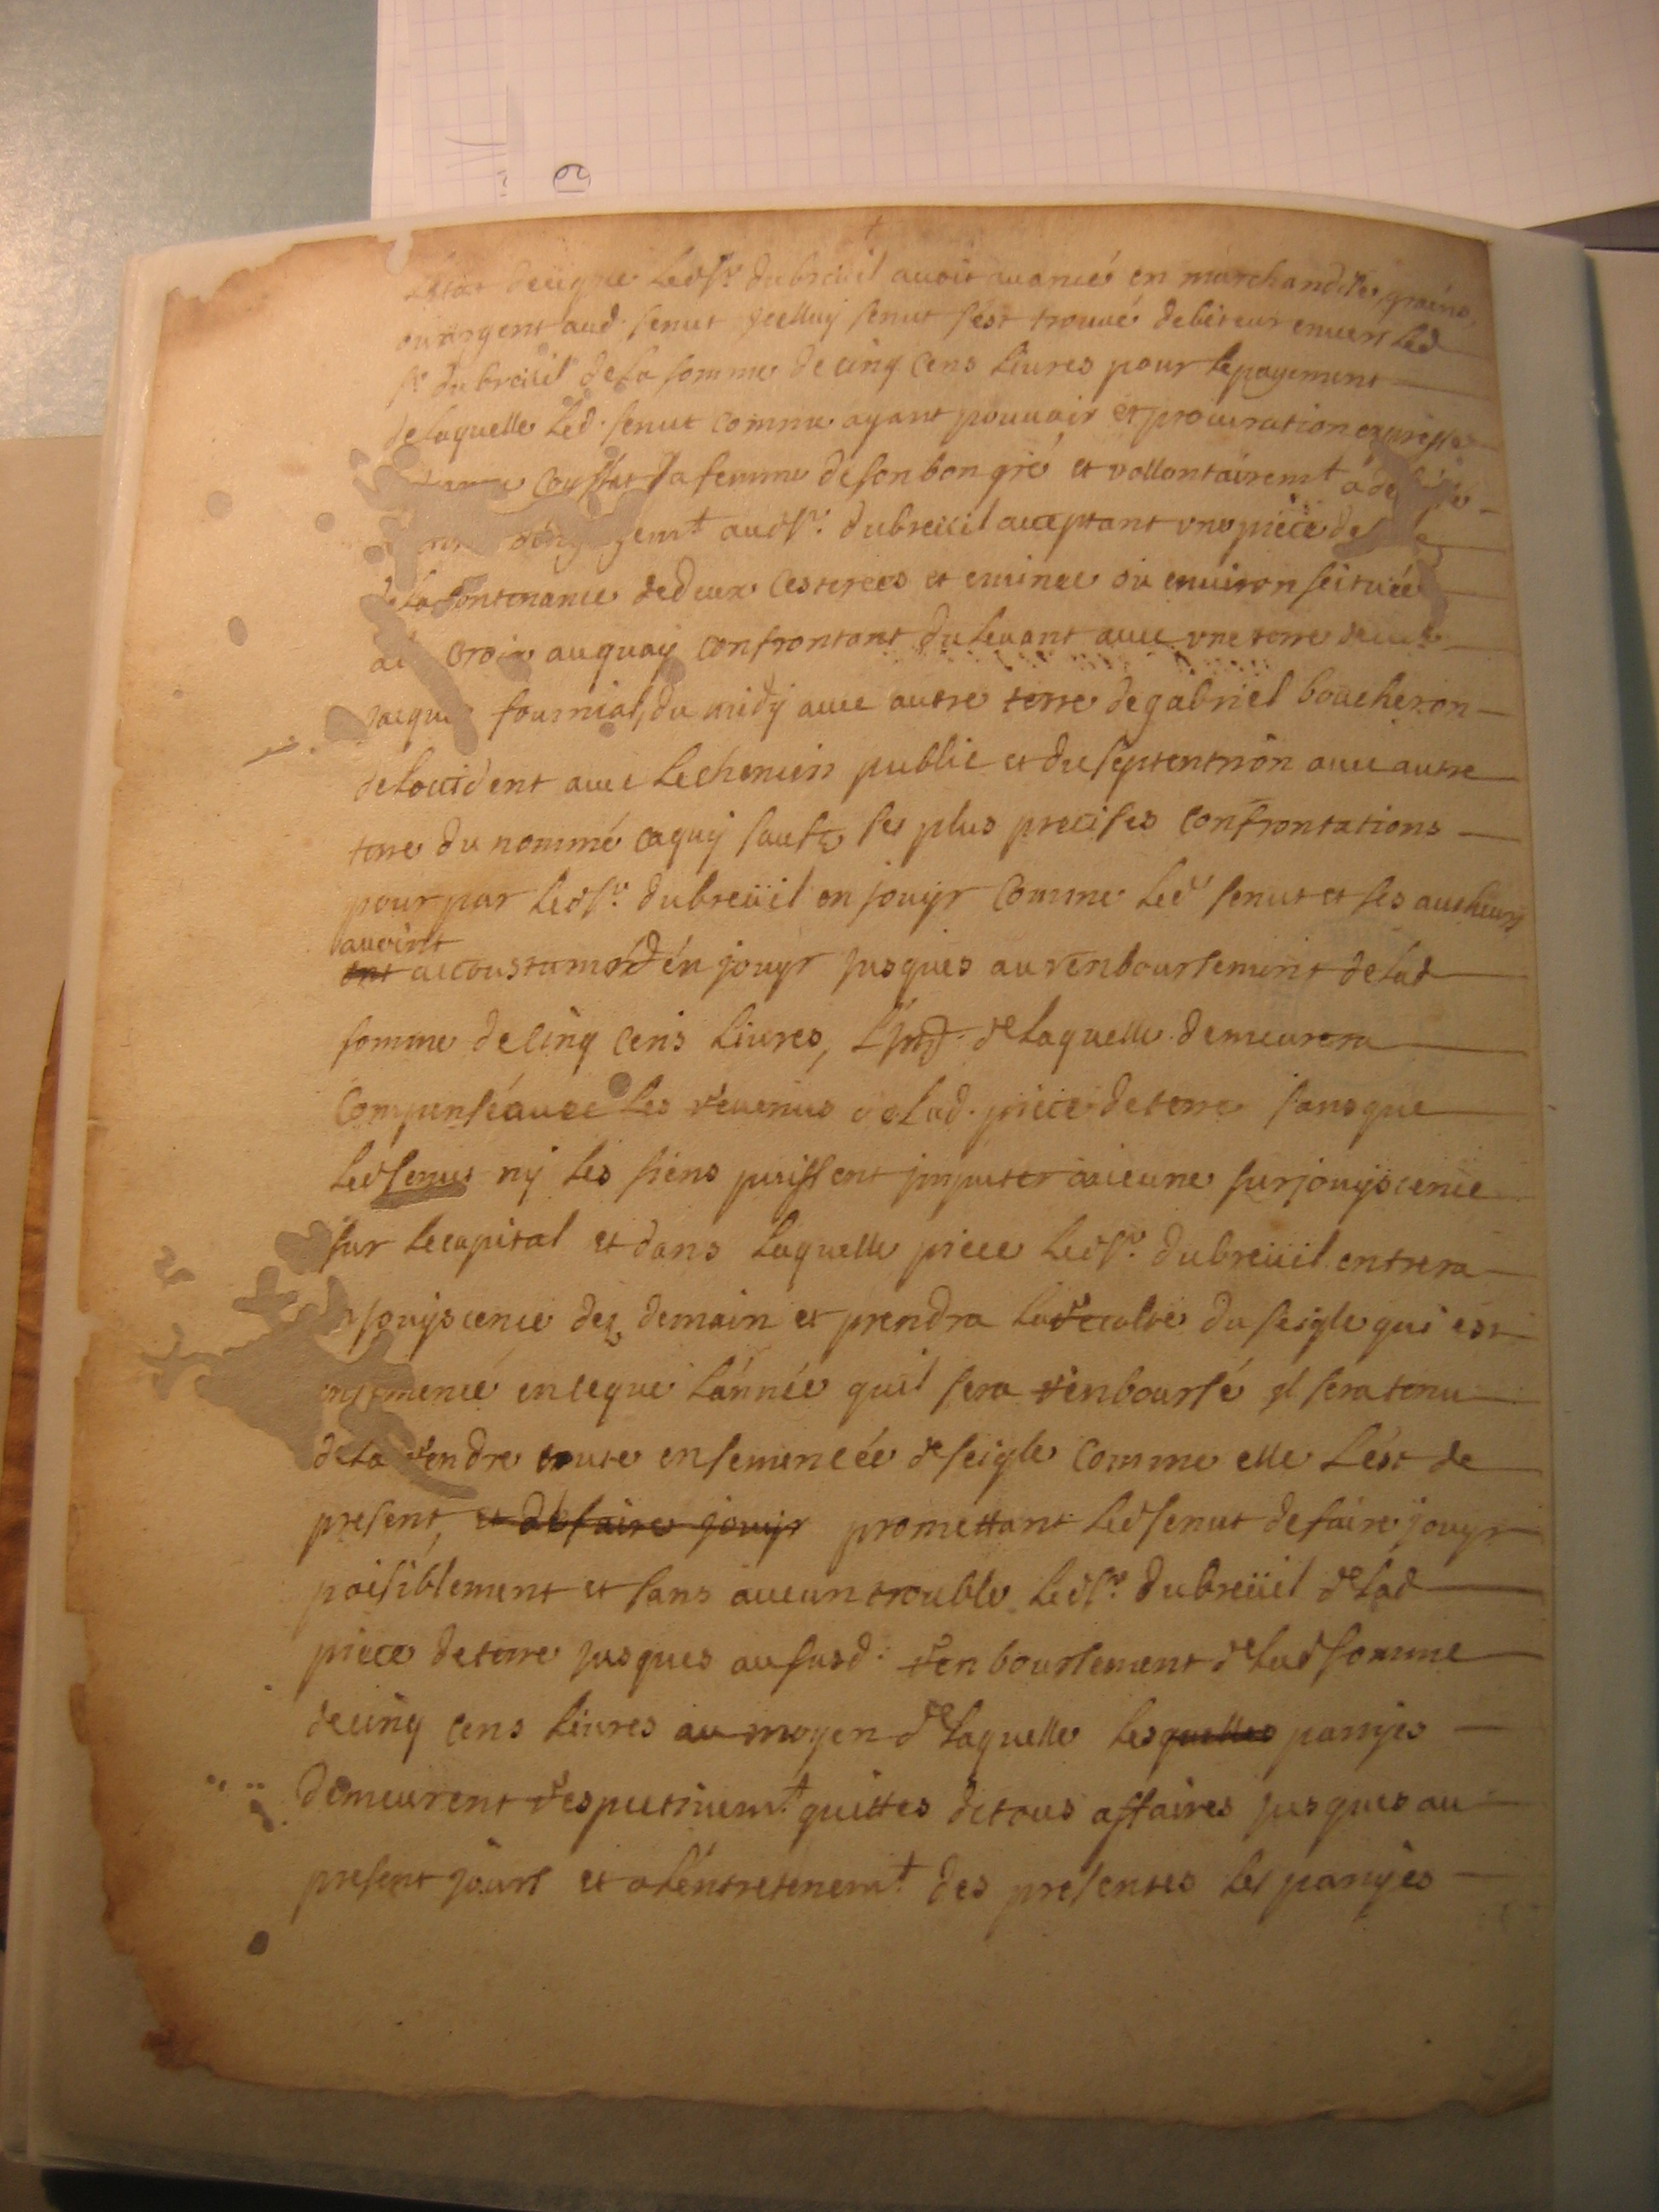 de ce que ledsr. dubreüil avoit avancé en marchandises, grains,
ou argent aud. senut ycelluy senut s'est trouvé debiteur envers led
sr. dubreüil de la somme de cinq cens livres pour le payement
de laquelle led. senut comme ayant pouvoir et procuration expresse
Constat sa femme de son bon gré et vollontairemt. à de
audsr. dubreüil acceptant une piece de
de la Contenance de deux cesterées et eminée ou environ scituée
au Croix auquay Confrontant du levant avec une terre de
Jacques fournial, du midy avec autre terre de gabriel boucheron
de loccident avec le chemein public et du septentrion avec autre
terre du nommé caquy sauf ses plus precises confrontations
pour par ledsr. dubreüil en jouyr Comme led senut et ses autheurs
avoint
ont accoustumé d'en jouyr jusques au renboursement de lad
somme de cinq cens livres, de laquelle demeurera
Compensé avec les revenus de lad. piece de terre sans que
led senut ny les siens puissent jmputer aucune surjouyscence
sur le capital et dans laquelle piece ledsr. dubreüil entrera
n jouyscence dez demain et prendra la recolte du seigle qui est
ensemencé en ce que l'année quil sera renboursé jl sera tenu
de la rendre toute ensemencée de seigle Comme elle l'est de
present, et de faire jouyr promettant led senut de faire jouyr
paisiblement et sans aucun trouble ledsr. dubreüil de lad
piece de terre jusques au susd. renboursement de lad somme
de cinq cens livres au moyen de laquelle lesquelles partyes
demeurent respectivemt. quittes de tous affaires jusques au
present jour et a l'entretenemt. des presentes les partyes